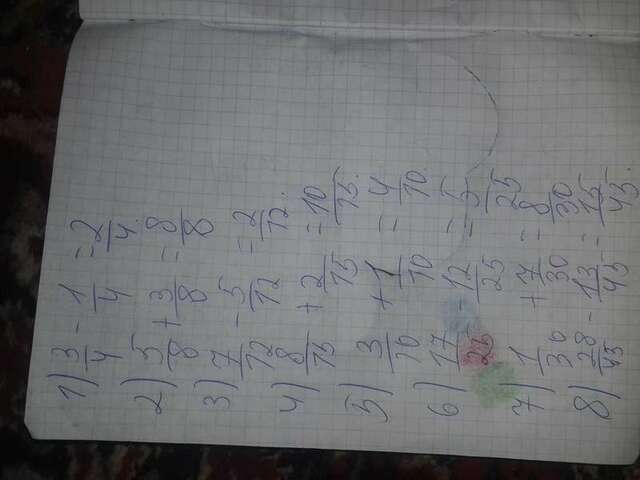 1) 3/4 - 1/4 = 2/4.
2) 5/8 + 3/8 = 8/8
3) 7/12 - 5/12 = 2/12.
4) 8/15 + 2/15 = 10/15.
5) 3/10 + 1/10 = 4/10.
6) 17/25 - 12/25 = 5/25
7) 1/30 + 7/30 = 8/30
8) 28/45 - 13/45 = 15/45.